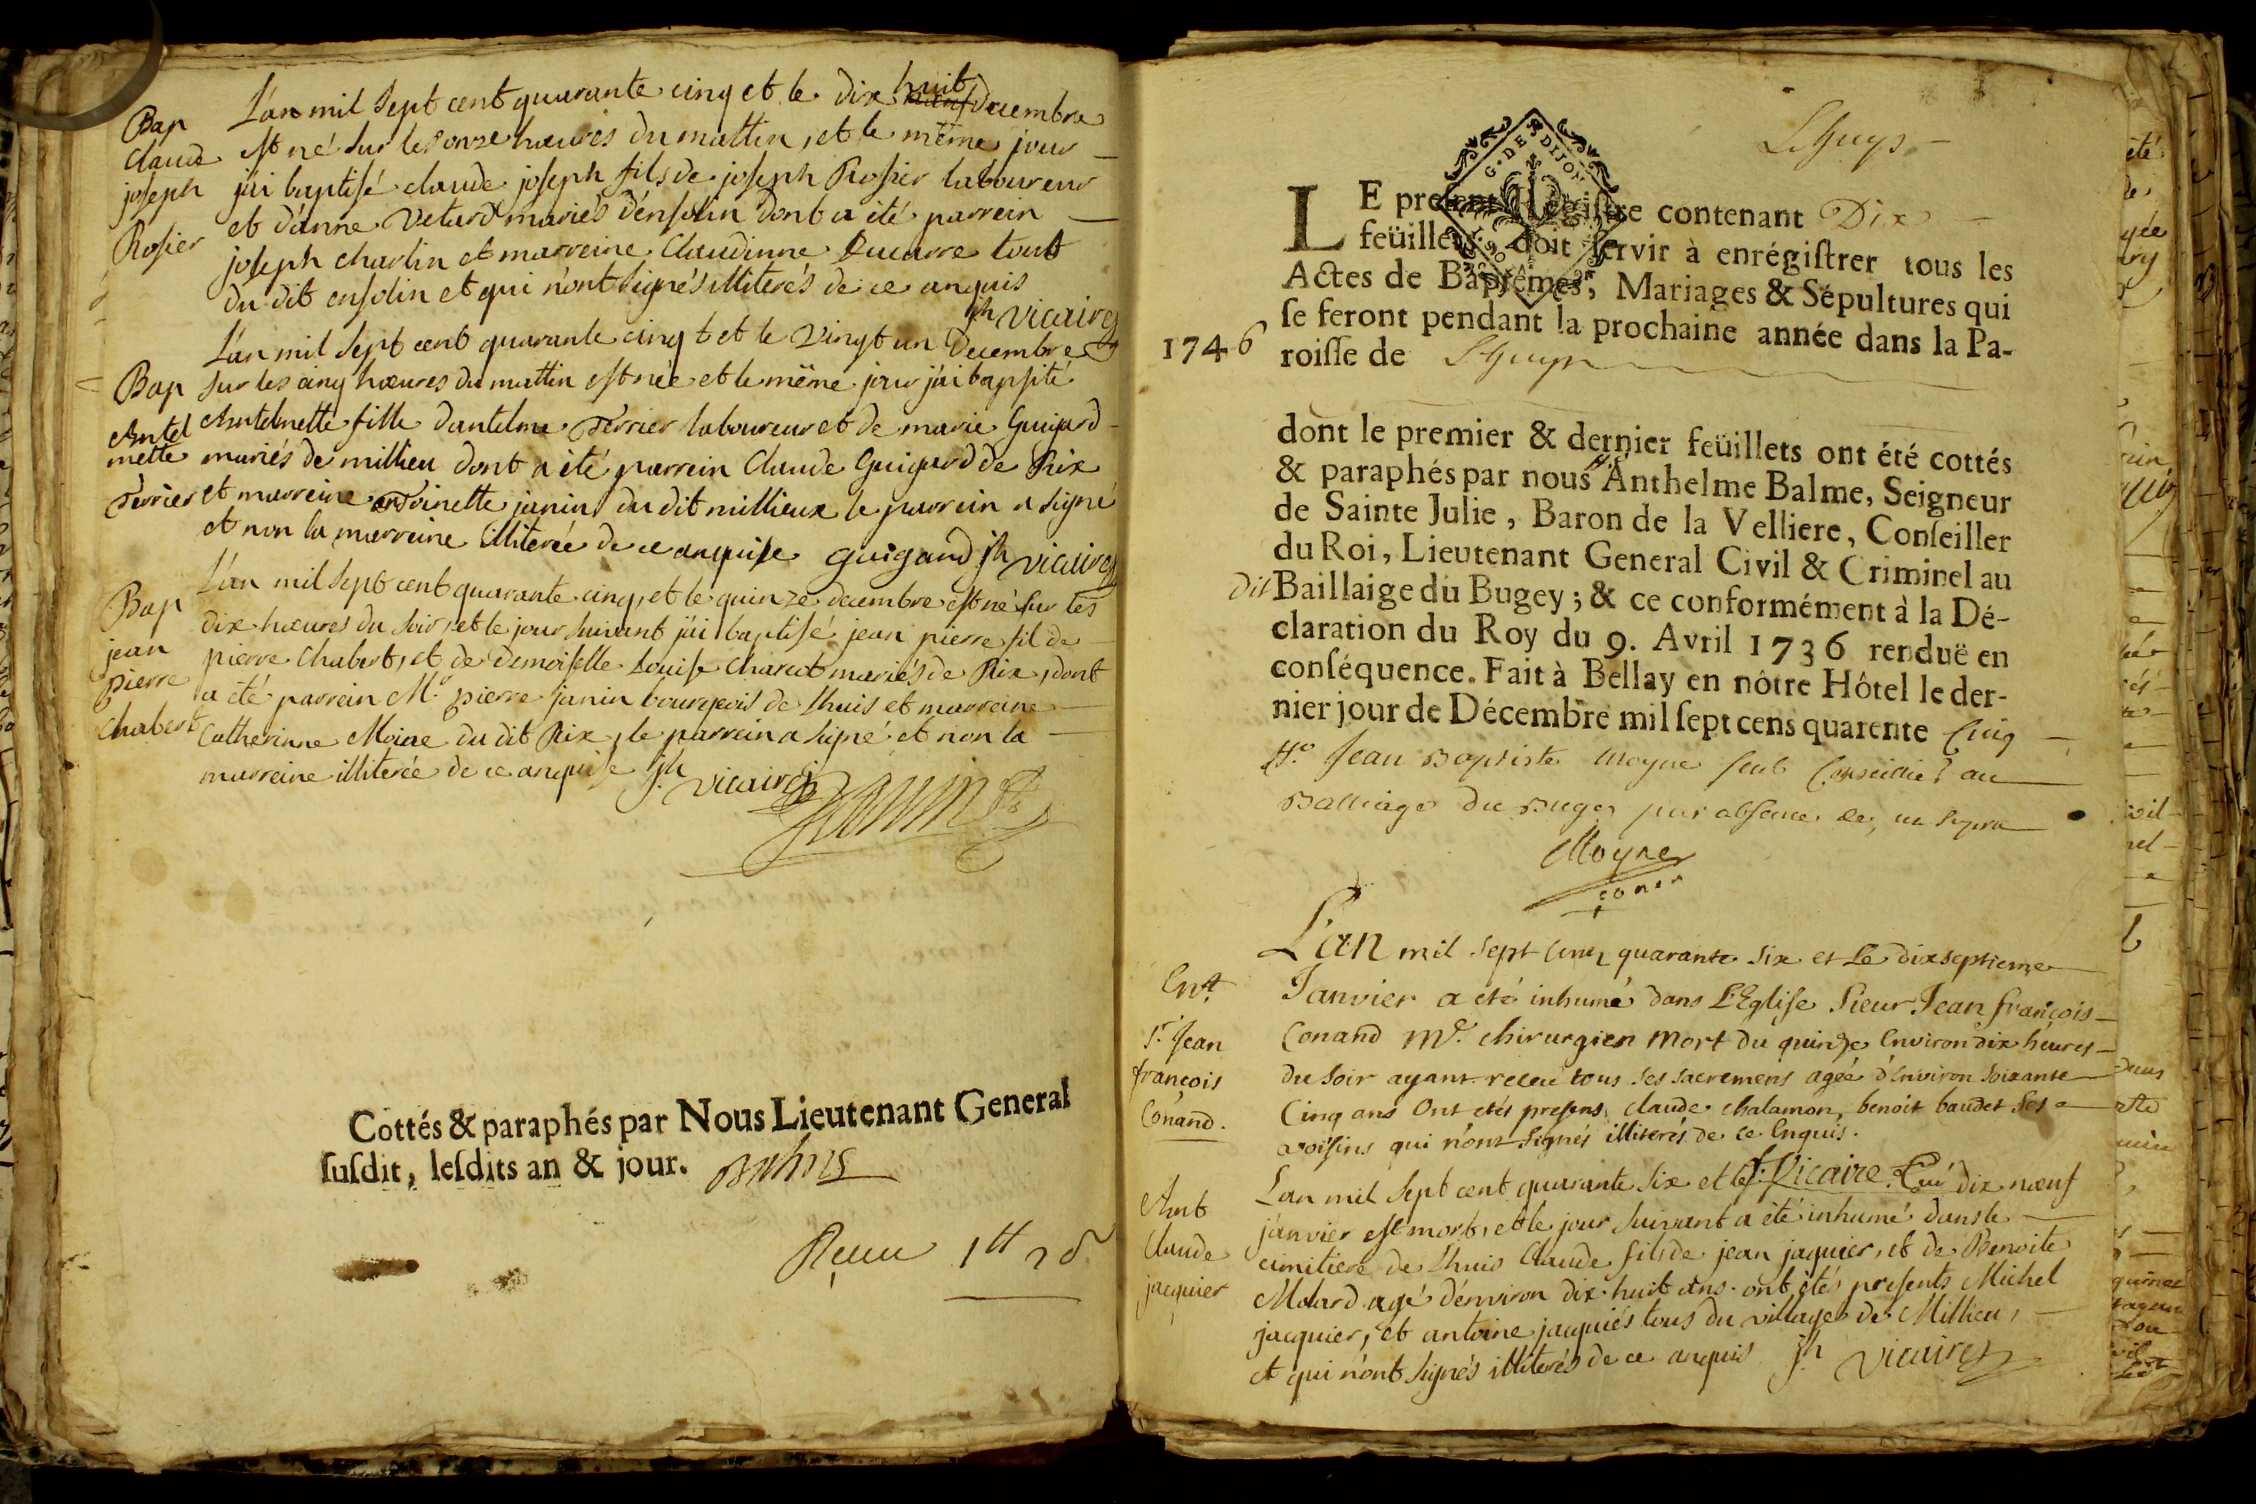 L'an mil sept cent quarante cinq et le dix huit decembre
Bap
Claude
joseph
Rosier
est né sur les onze hœures du mattin, et le même jour
j'ai baptisé claude joseph fils de joseph Rosier laboureur
et d'anne Vetard mariés d'ensolin dont a été parrein
joseph charlin et marreine Claudinne Ducarre touts
du dit ensolin et qui n'ont signés illiterés de ce anquis
jh Vicaire
L'an mil sept cent quarante cinq t et le vingt un decembre
Bap
Antel
mette
Ferrier
sur les cinq hœures du mattin est née et le même jour j'ai baptisé
Antelmette fille dantelme Ferrier laboureur et de marie Guigard
mariés de millieu dont a été parrein Claude Guigard de Rix
et marreine antoinette janin du dit millieux le parrein a signé
et non la marreine illiterée de ce anquise guigand jh vicaire
L'an mil sept cent quarante cinq, et le quinze decembre est né sur les
Bap
jean
pierre
Chabert
dix hœures du soir, et le jour suivant j'ai baptisé jean pierre fil de
pierre Chabert, et de demoiselle Louise Charcot mariés de Rix, dont
a été parrein Mr. pierre janin bourgeois de Lhuis et marreine
Catherinne Moine du dit Rix, le parrein a signé et non la
marreine illiterée de ce anquise jh vicaire
janin
Cottés & paraphés par Nous Lieutenant General
susdit, lesdits an & jour.
Lhuys
LE present Registre contenant Dix
feüillets doit servir à enrégistrer tous les
Actes de Baptêmes, Mariages & Sépultures qui
se feront pendant la prochaine année dans la Pa-
1746
roisse de Lhuys
G. DE DIJON
dont le premier & dernier feüillets ont été cottés
& paraphés par nous Anthelme Balme, Seigneur
de Sainte Julie, Baron de la Velliere, Conseiller
du Roi, Lieutenant General Civil & Criminel au
dit Baillaige du Bugey; & ce conformément à la Dé-
claration du Roy du 9. Avril 1736 renduë en
conséquence. Fait à Bellay en nôtre Hôtel le der-
nier jour de Décembre mil sept cens quarente Cinq
Jean Baptiste Moyne seul Conseillier au
Balliage du Bugey par absence
Moyne
L'an mil sept cent quarante six et Le dixseptieme
Entt.
Sr. Jean
françois
Conand.
Janvier a eté inhumé dans L'Eglise Sieur Jean françois
Conand Me. chirurgien mort du quinze Environ dix héures
du soir ayant receu tous ses sacremens agée d'Environ soixante
Cinq ans Ont etés presens claude chalamon, benoit baudet ses
avoisins qui n'ont signés illiterés de ce Enquis.
Vicaire
L'an mil sept cent quarante six et le dix nœuf
Ant
Claude
jacquier
janvier est mort, et le jour suivant a été inhumé dans le
cimitiere de Lhuis Claude fils de jean jaquier, et de Benoite
Molard agé d'environ dix huit ans. ont étés presents Michel
jacquier, et antoine jacquiés tous du village de Millieu,
et qui n'ont signés illiterés de ce anquis jh vicaire